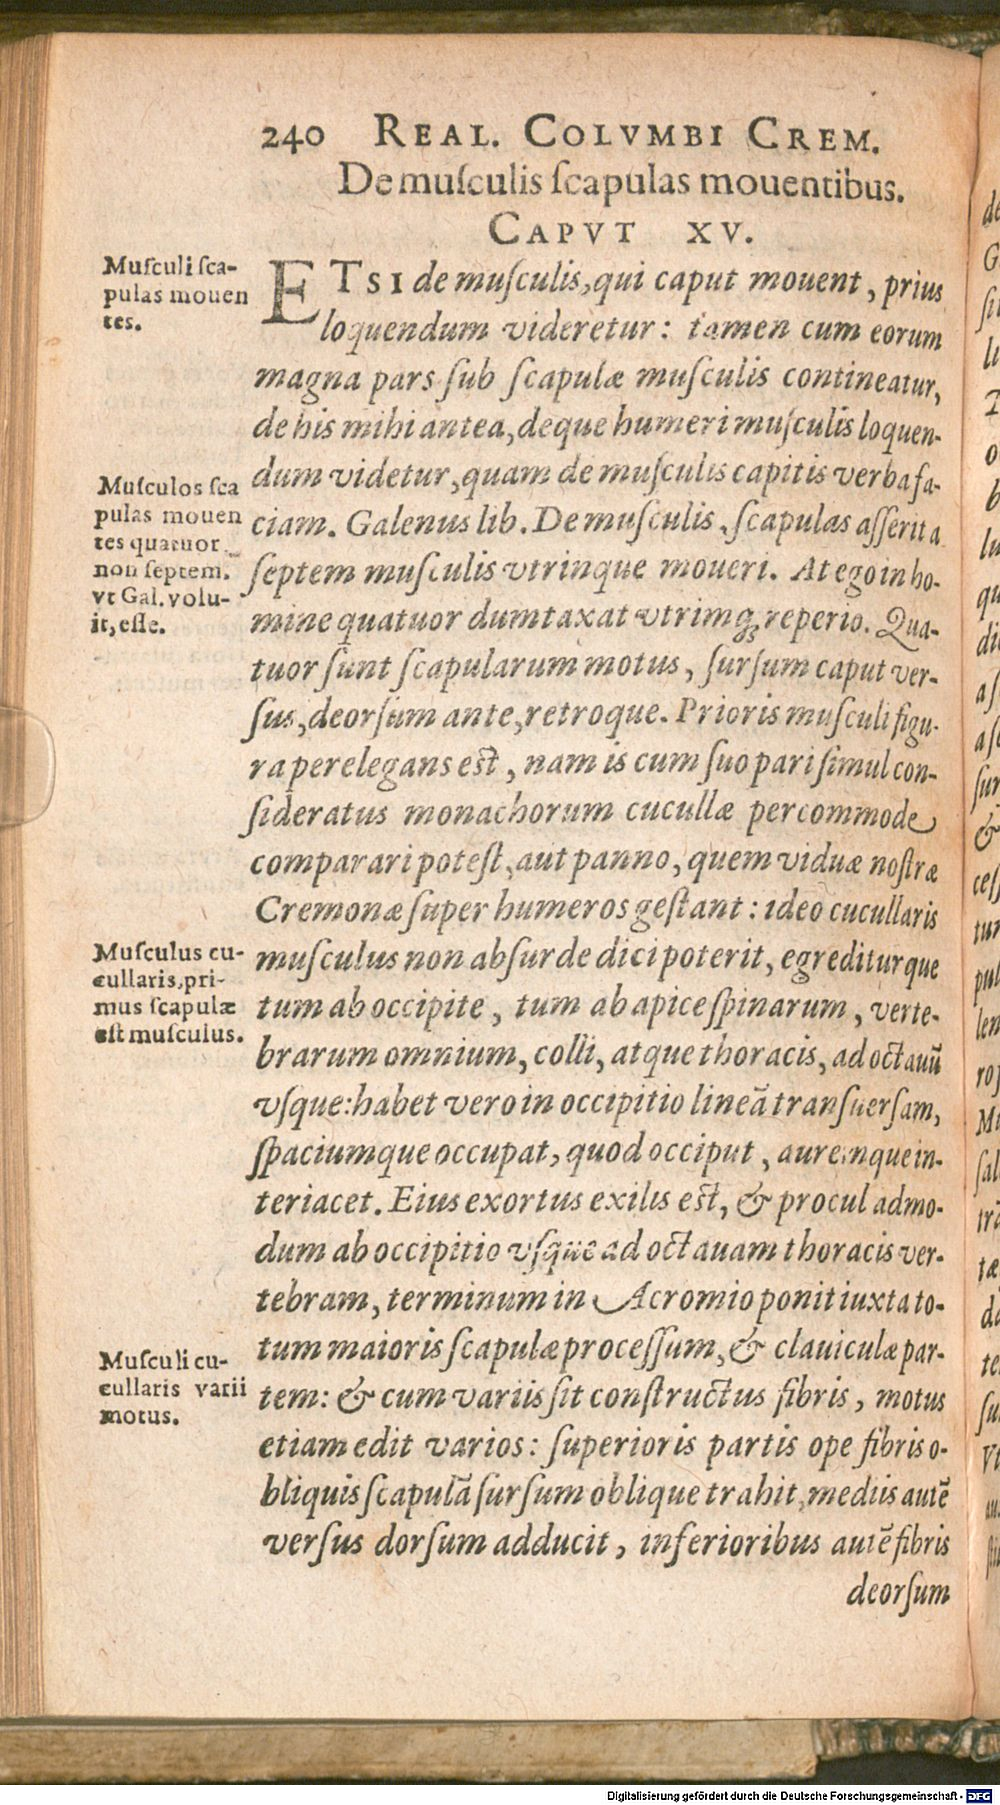 240 REAL. COLVMBI CREM.
De musculis scapulas mouentibus.
CAPVT XV.
Musculi sca-
pulas mouen
tes.
ETSI de musculis, qui caput mouent, prius
loquendum videretur: tamen cum eorum
magna pars sub scapulæ musculis contineatur,
de his mihi antea, deque humeri musculis loquen-
Musculos sca
pulas mouen
tes quatuor
non septem.
vt Gal. volu-
it, esse.
dum videtur, quam de musculis capitis verba fa-
ciam. Galenus lib. De musculis, scapulas asserit a
septem musculis vtrinque moueri. At ego in ho-
mine quatuor dumtaxat vtrimq; reperio. Qua-
tuor sunt scapularum motus, sursum caput ver-
sus, deorsum ante, retroque. Prioris musculi figu-
ra perelegans est, nam is cum suo pari simul con-
sideratus monachorum cucullæ percommode
comparari potest, aut panno, quem viduæ nostræ
Cremonæ super humeros gestant: ideo cucullaris
Musculus cu-
cullaris, pri-
mus scapulæ
est musculus.
musculus non absurde dici poterit, egrediturque
tum ab occipite, tum ab apice spinarum, verte-
brarum omnium, colli, atque thoracis, ad octauū
vsque: habet vero in occipitio lineā transuersam,
spaciumque occupat, quod occiput, auremque in-
teriacet. Eius exortus exilis est, & procul admo-
dum ab occipitio vsque ad octauam thoracis ver-
tebram, terminum in Acromio ponit iuxta to-
tum maioris scapulæ processum, & clauiculæ par-
Musculi cu-
cullaris varii
motus.
tem: & cum variis sit constructus fibris, motus
etiam edit varios: superioris partis ope fibris o-
bliquis scapulā sursum oblique trahit, mediis autē
versus dorsum adducit, inferioribus autē fibris
deorsum
Digitalisierung gefördert durch die Deutsche Forschungsgemeinschaft - DFG